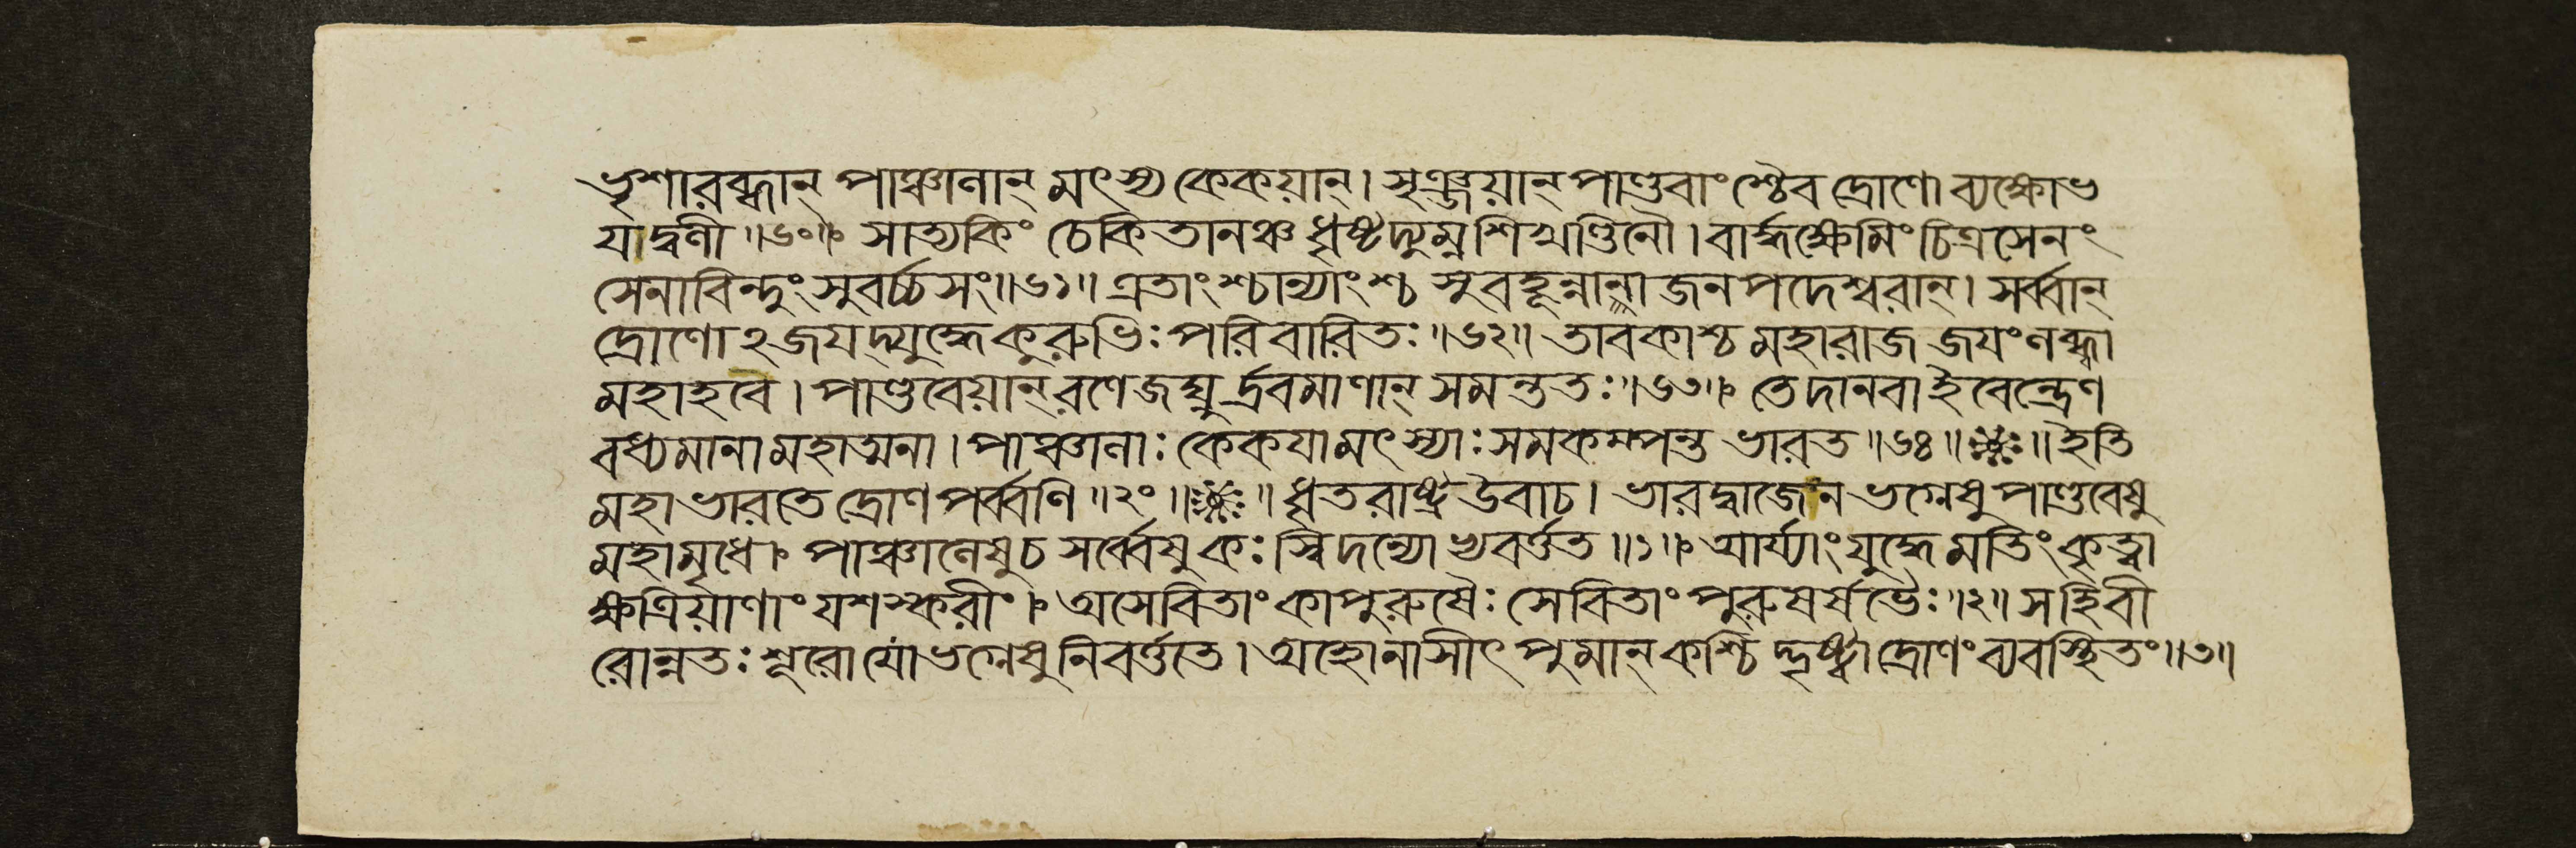 ভৃশারব্ধান্ পাঞ্চালান্ মৎস্য কেকয়ান্। সৃঞ্জয়ান্ পাণ্ডবাংশ্চৈব দ্রোণো ব্যক্ষোভ
যদ্বলী॥৬০॥ সাত্যকিং চেকিতানঞ্চ ধৃষ্টদ্যুম্ন শিখণ্ডিনৌ। বার্দ্ধক্ষেমিং চিত্রসেনং
সেনাবিন্দুং সুবর্চ্চসং॥৬১॥ এতাংশ্চান্যাংশ্চ সুবহূন্নানা জনপদেশ্বরান্। সর্ব্বান্
দ্রোণো ঽজয়দ্যুদ্ধে কুরুভিঃ পরিবারিতঃ॥৬২॥ তাবকাশ্চ মহারাজ জয়ং লব্ধ্বা
মহাহবে। পাণ্ডবেয়ান্ রণে জঘ্নুর্দ্রবমাণান্ সমন্ততঃ॥৬৩॥ তে দানবা ইবেন্দ্রেণ
বধ্যমানা মহাত্মনা। পাঞ্চালাঃ কেকয়া মৎস্যাঃ সমকম্পন্ত ভারত॥৬৪॥ ॥ইতি
মহাভারতে দ্রোণপর্ব্বণি॥২০॥ ॥ধৃতরাষ্ট্র উবাচ। ভারদ্বাজেন ভগ্নেষু পাণ্ডবেষু
মহামৃধে। পাঞ্চালেষু চ সর্ব্বেষু কঃ স্বিদন্যোভ্যবর্ত্তত॥১॥ আর্য্যাং যুদ্ধে মতিং কৃত্বা
ক্ষত্রিয়াণাং যশস্করীং। অসেবিতাং কাপুরুষৈঃ সেবিতাং পুরুষর্ষভৈঃ॥২॥ সহি বী
রোন্নতঃ শূরো যো ভগ্নেষু নিবর্ত্ততে। অহো নাসীৎ পুমান্ কশ্চিদ্দৃষ্ট্বা দ্রোণং ব্যবস্থিতং॥৩॥